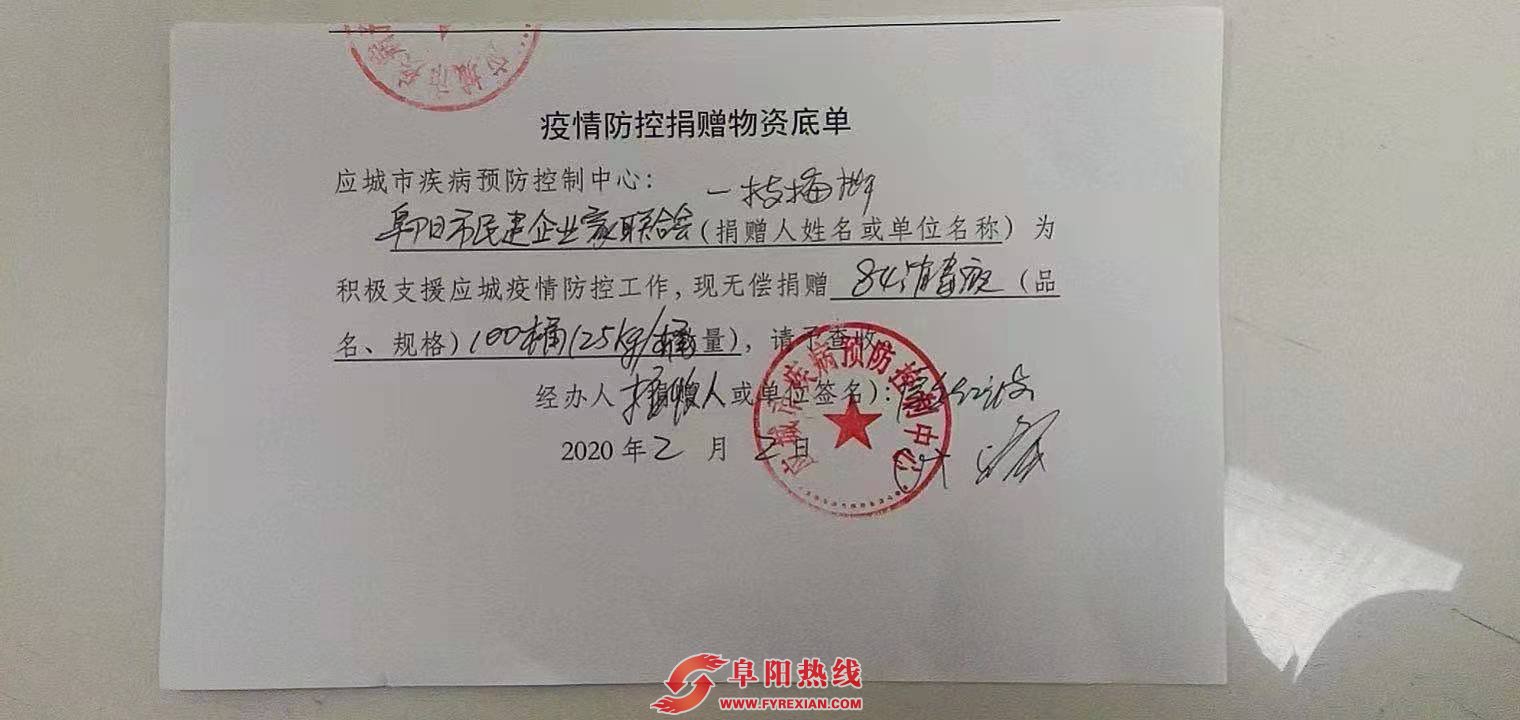 疫情防控捐赠物资底单
应城市疾病预防控制中心：
阜阳市民建企业家联合会（捐赠人姓名或单位名称）为
积极支援应城疫情防控工作，现无偿捐赠 84消毒液（品
名、规格）100桶（25kg/桶数量），请予查收
经办人 捐赠人或单位签名）：
2020年2月2日
应城市疾病预防控制中心
应城市疾
阜阳热线
WWW.FYREXIAN.COM